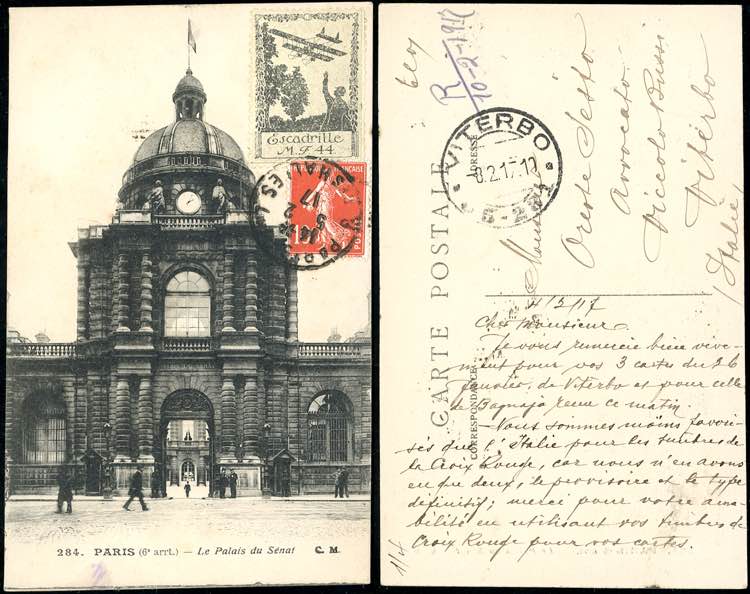 Escadrille
M.F. 44
POSTES
284. PARIS (6e arrt.) — Le Palais du Sénat C. M.
CARTE POSTALE
CORRESPONDANCE
ADRESSE
R
10-2-1917
VITERBO
8.2.17.12
Monsieur
Oreste Sesto
Avvocato
Viccolo Bussi
Viterbo
(Italie)
4/2/17
Cher Monsieur
Je vous remercie bien vive-
ment pour vos 3 cartes du 26
Janvier, de Viterbo et pour celle
de Bagnaja reçue ce matin.
Nous sommes moins favori-
sés que l'Italie pour les timbres de
la Croix Rouge, car nous n'en avons
eu que deux, le provisoire et le type
définitif; merci pour votre ama-
bilité en utilisant vos timbres de
Croix Rouge pour vos cartes.